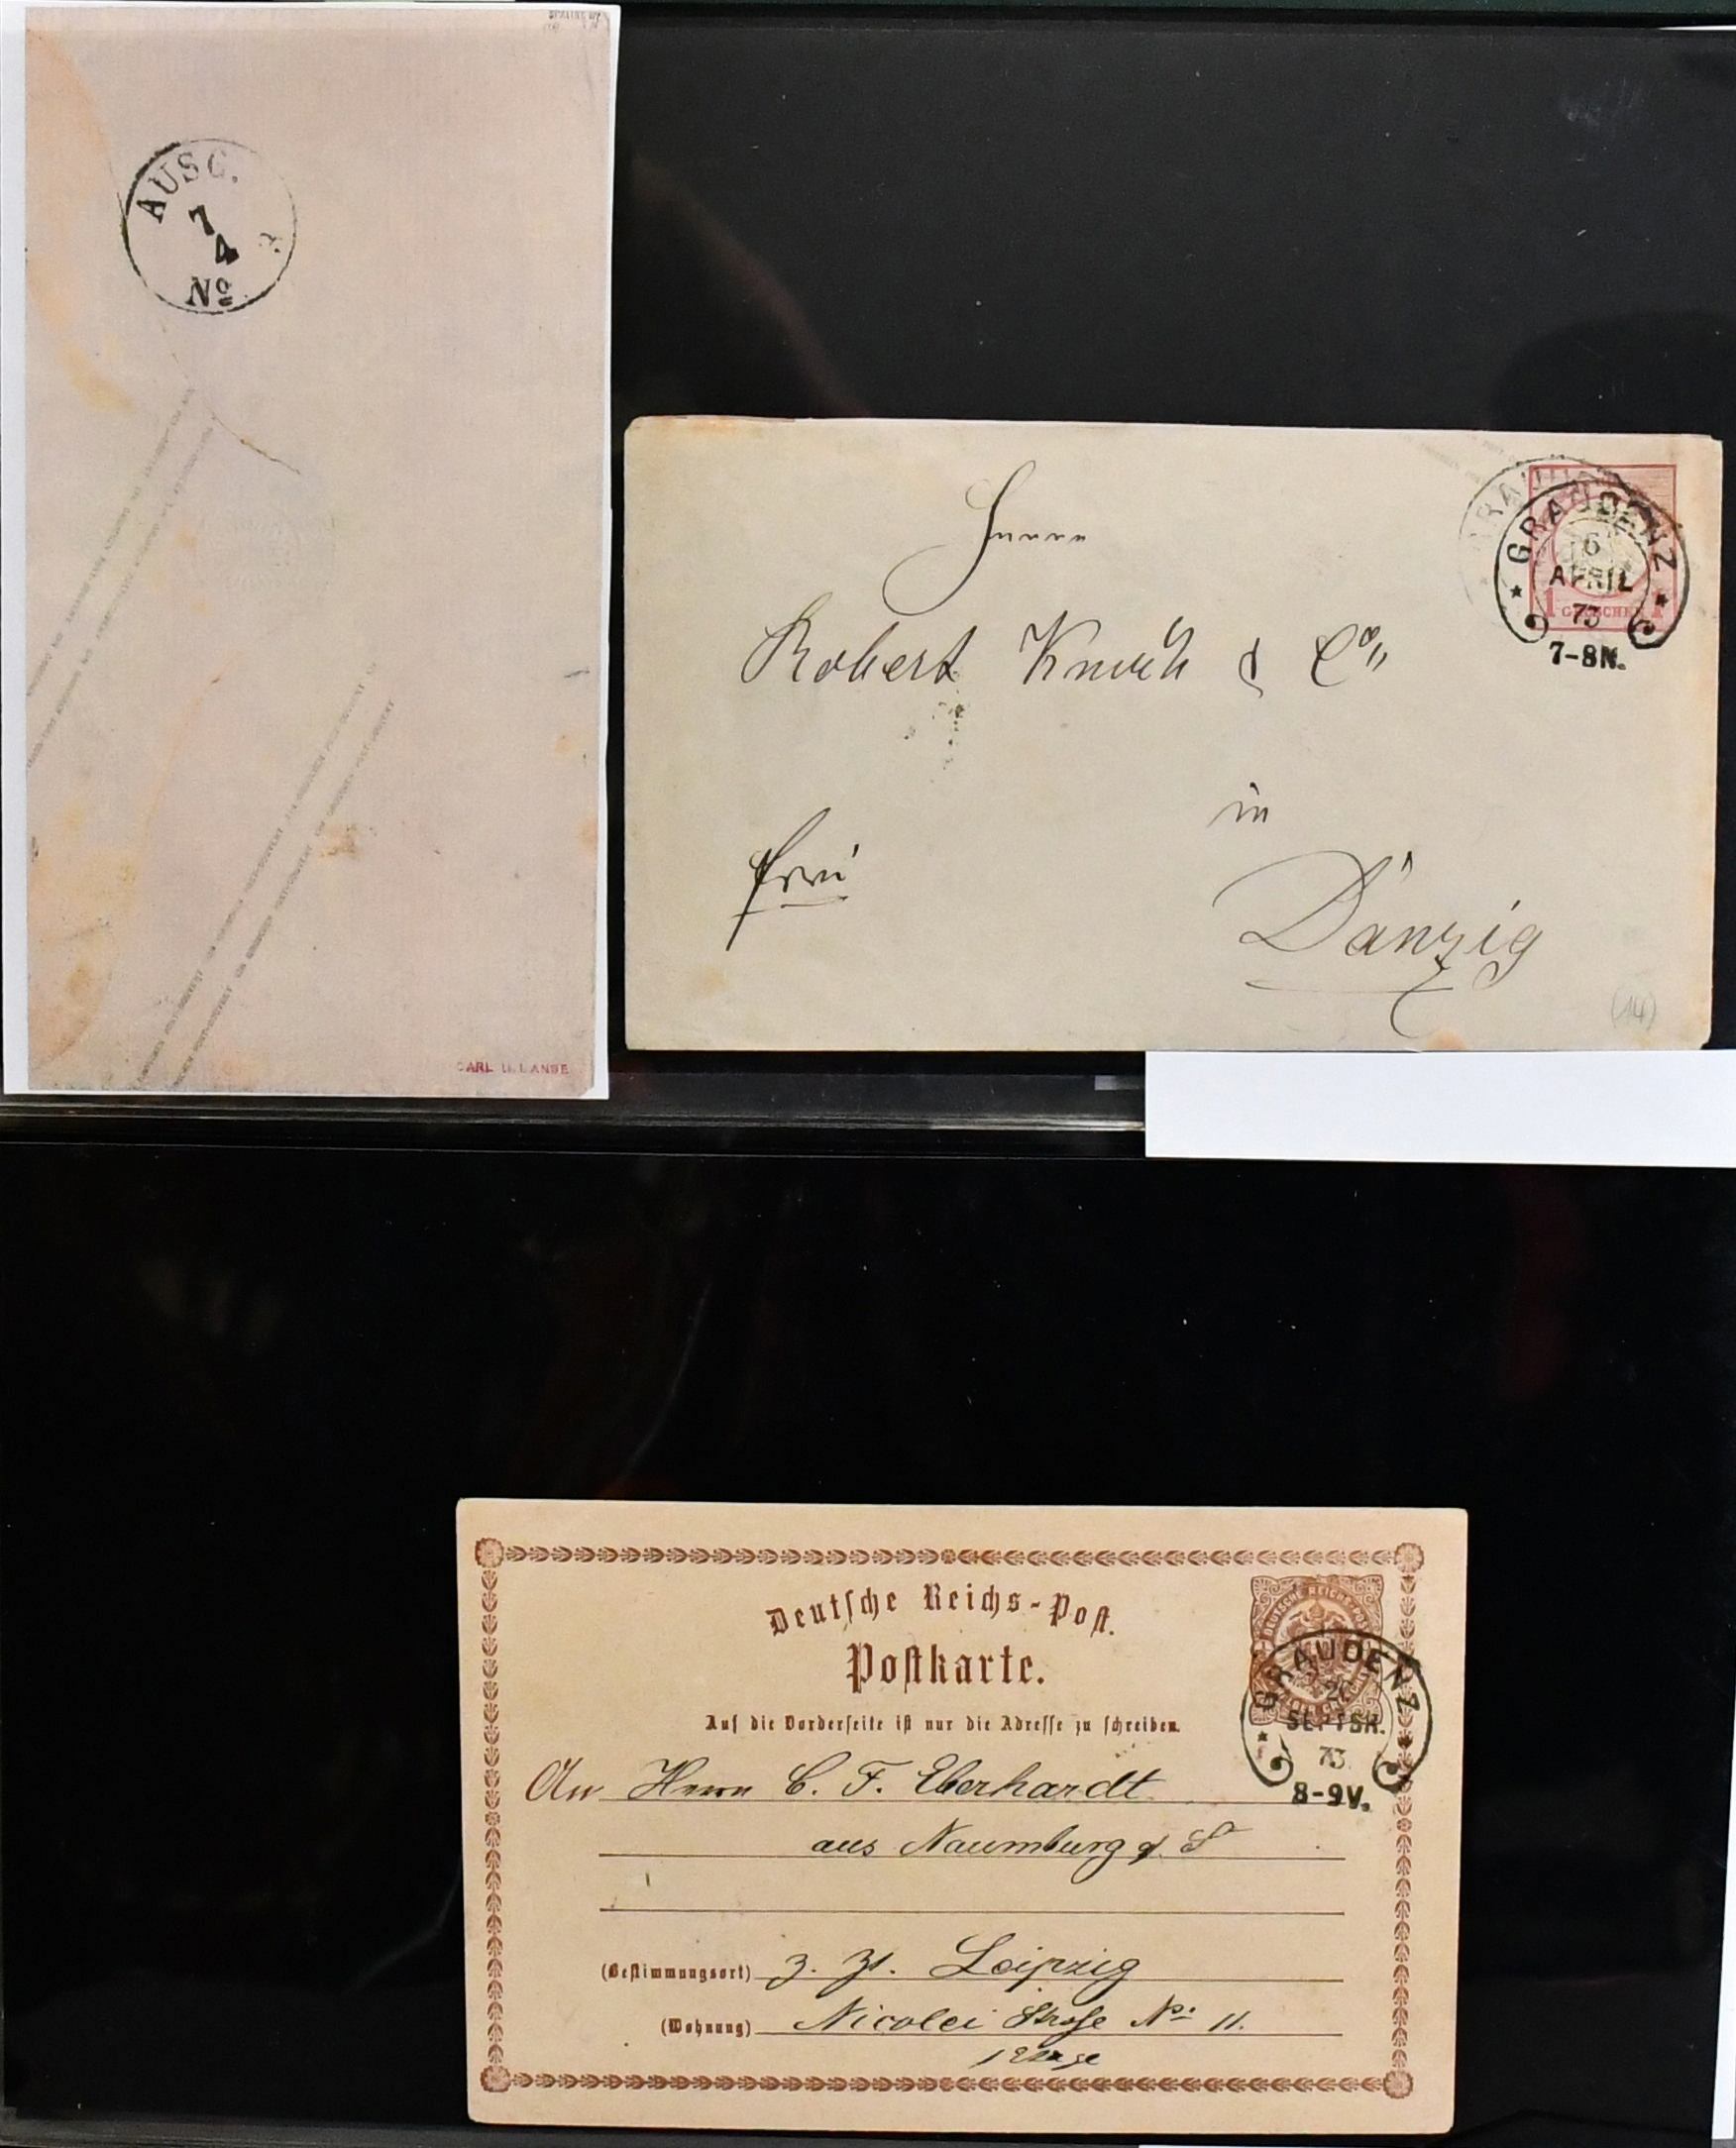 AUSG.
7
4
No
CARL H. LANGE
GRAUDENZ
6
APRIL
73
7-8N.
1 GROSCHEN 1
Herrn
Robert & Co
in
frei
Danzig
(14)
Deutsche Reichs-Post.
Postkarte.
Auf die Vorderseite ist nur die Adresse zu schreiben.
GRAUDENZ
SEPTBR.
73
8-9V.
An Herrn C. F. Eberhardt
aus Naumburg a/ S
(Bestimmungsort) z. Zt. Leipzig
(Wohnung) Nicolei Straße No 11.
1 Etage